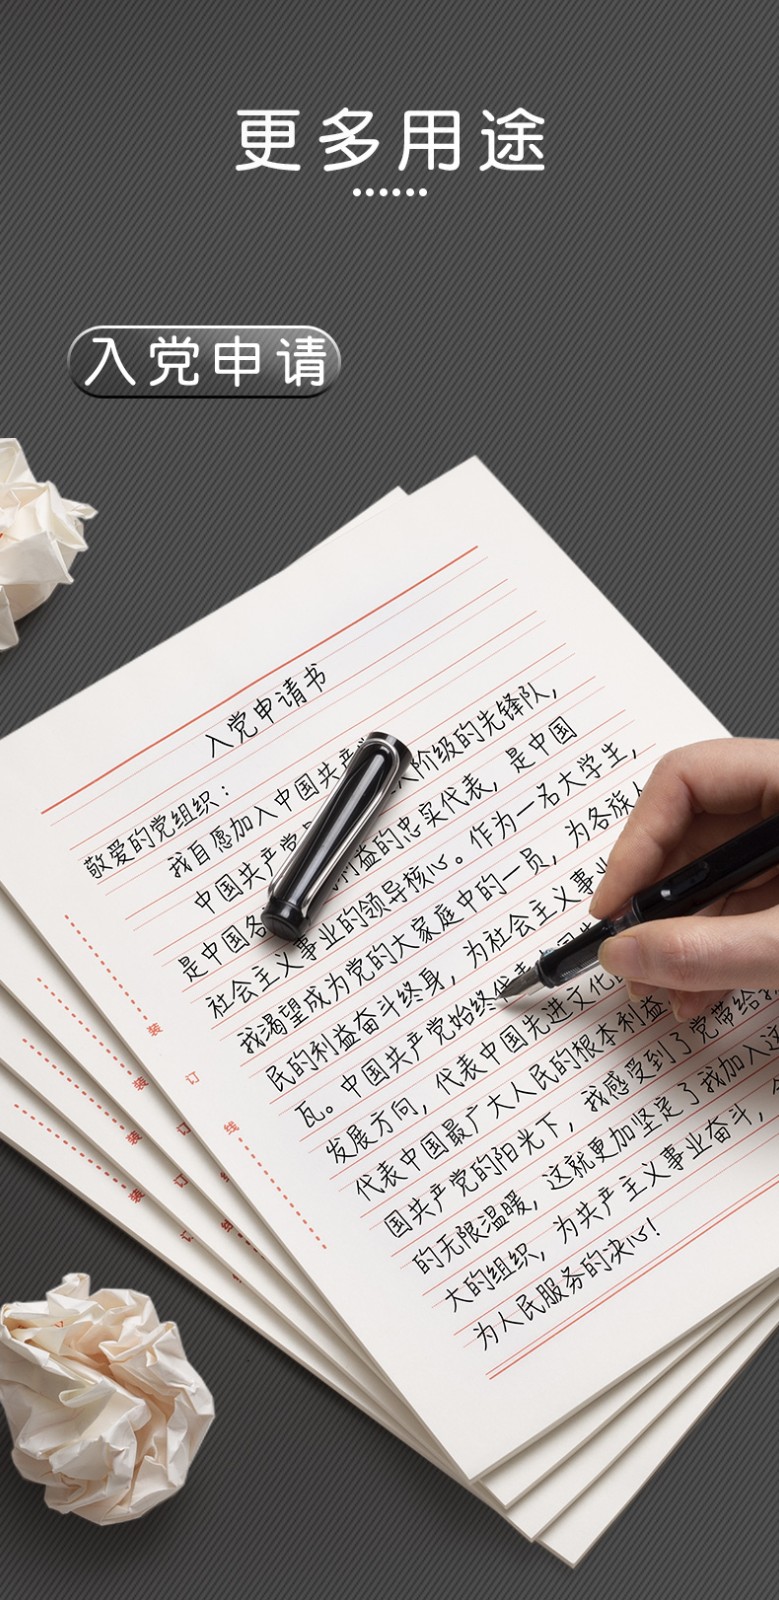 更多用途
入党申请
入党申请书
敬爱的党组织：
我自愿加入中国共产 人阶级的先锋队，
中国共产党 利益的忠实代表，是中国
是中国各 事业的领导核心。作为一名大学生，
社会主义 的大家庭中的一员，为各族人
我渴望成为党的 ，为社会主义事业
民的利益奋斗终身
。中国共产党始终代表
瓦。 代表中国先进文化
发展方向，代表中国最广大人民的根本利益
代表中国最广大人民的根本利益 我感受到了党带给我
国共产党的阳光下，
的无限温暖，这就更加坚定了我加入这
大的组织，为共产主义事业奋斗，
为人民服务的决心！
装 订 线
装 订
装 订
装 订